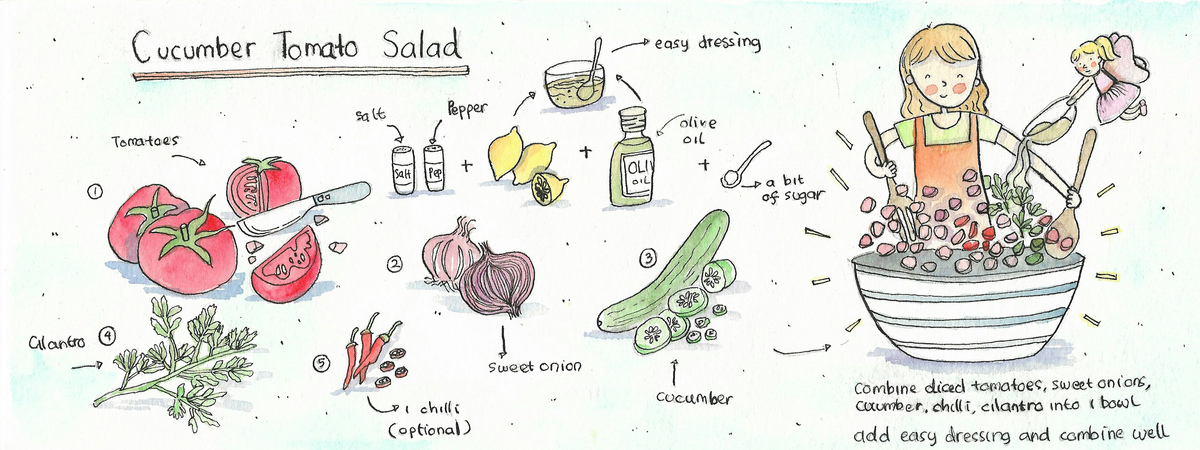 Cucumber Tomato Salad
easy dressing
salt
Pepper
Salt
Pep
olive
oil
OLIV
OIL
a bit
of sugar
Tomatoes
1
2
sweet onion
3
cucumber
Cilantro
4
5
1 chilli
(optional)
Combine diced tomatoes, sweet onions,
cucumber, chilli, cilantro into 1 bowl
add easy dressing and combine well